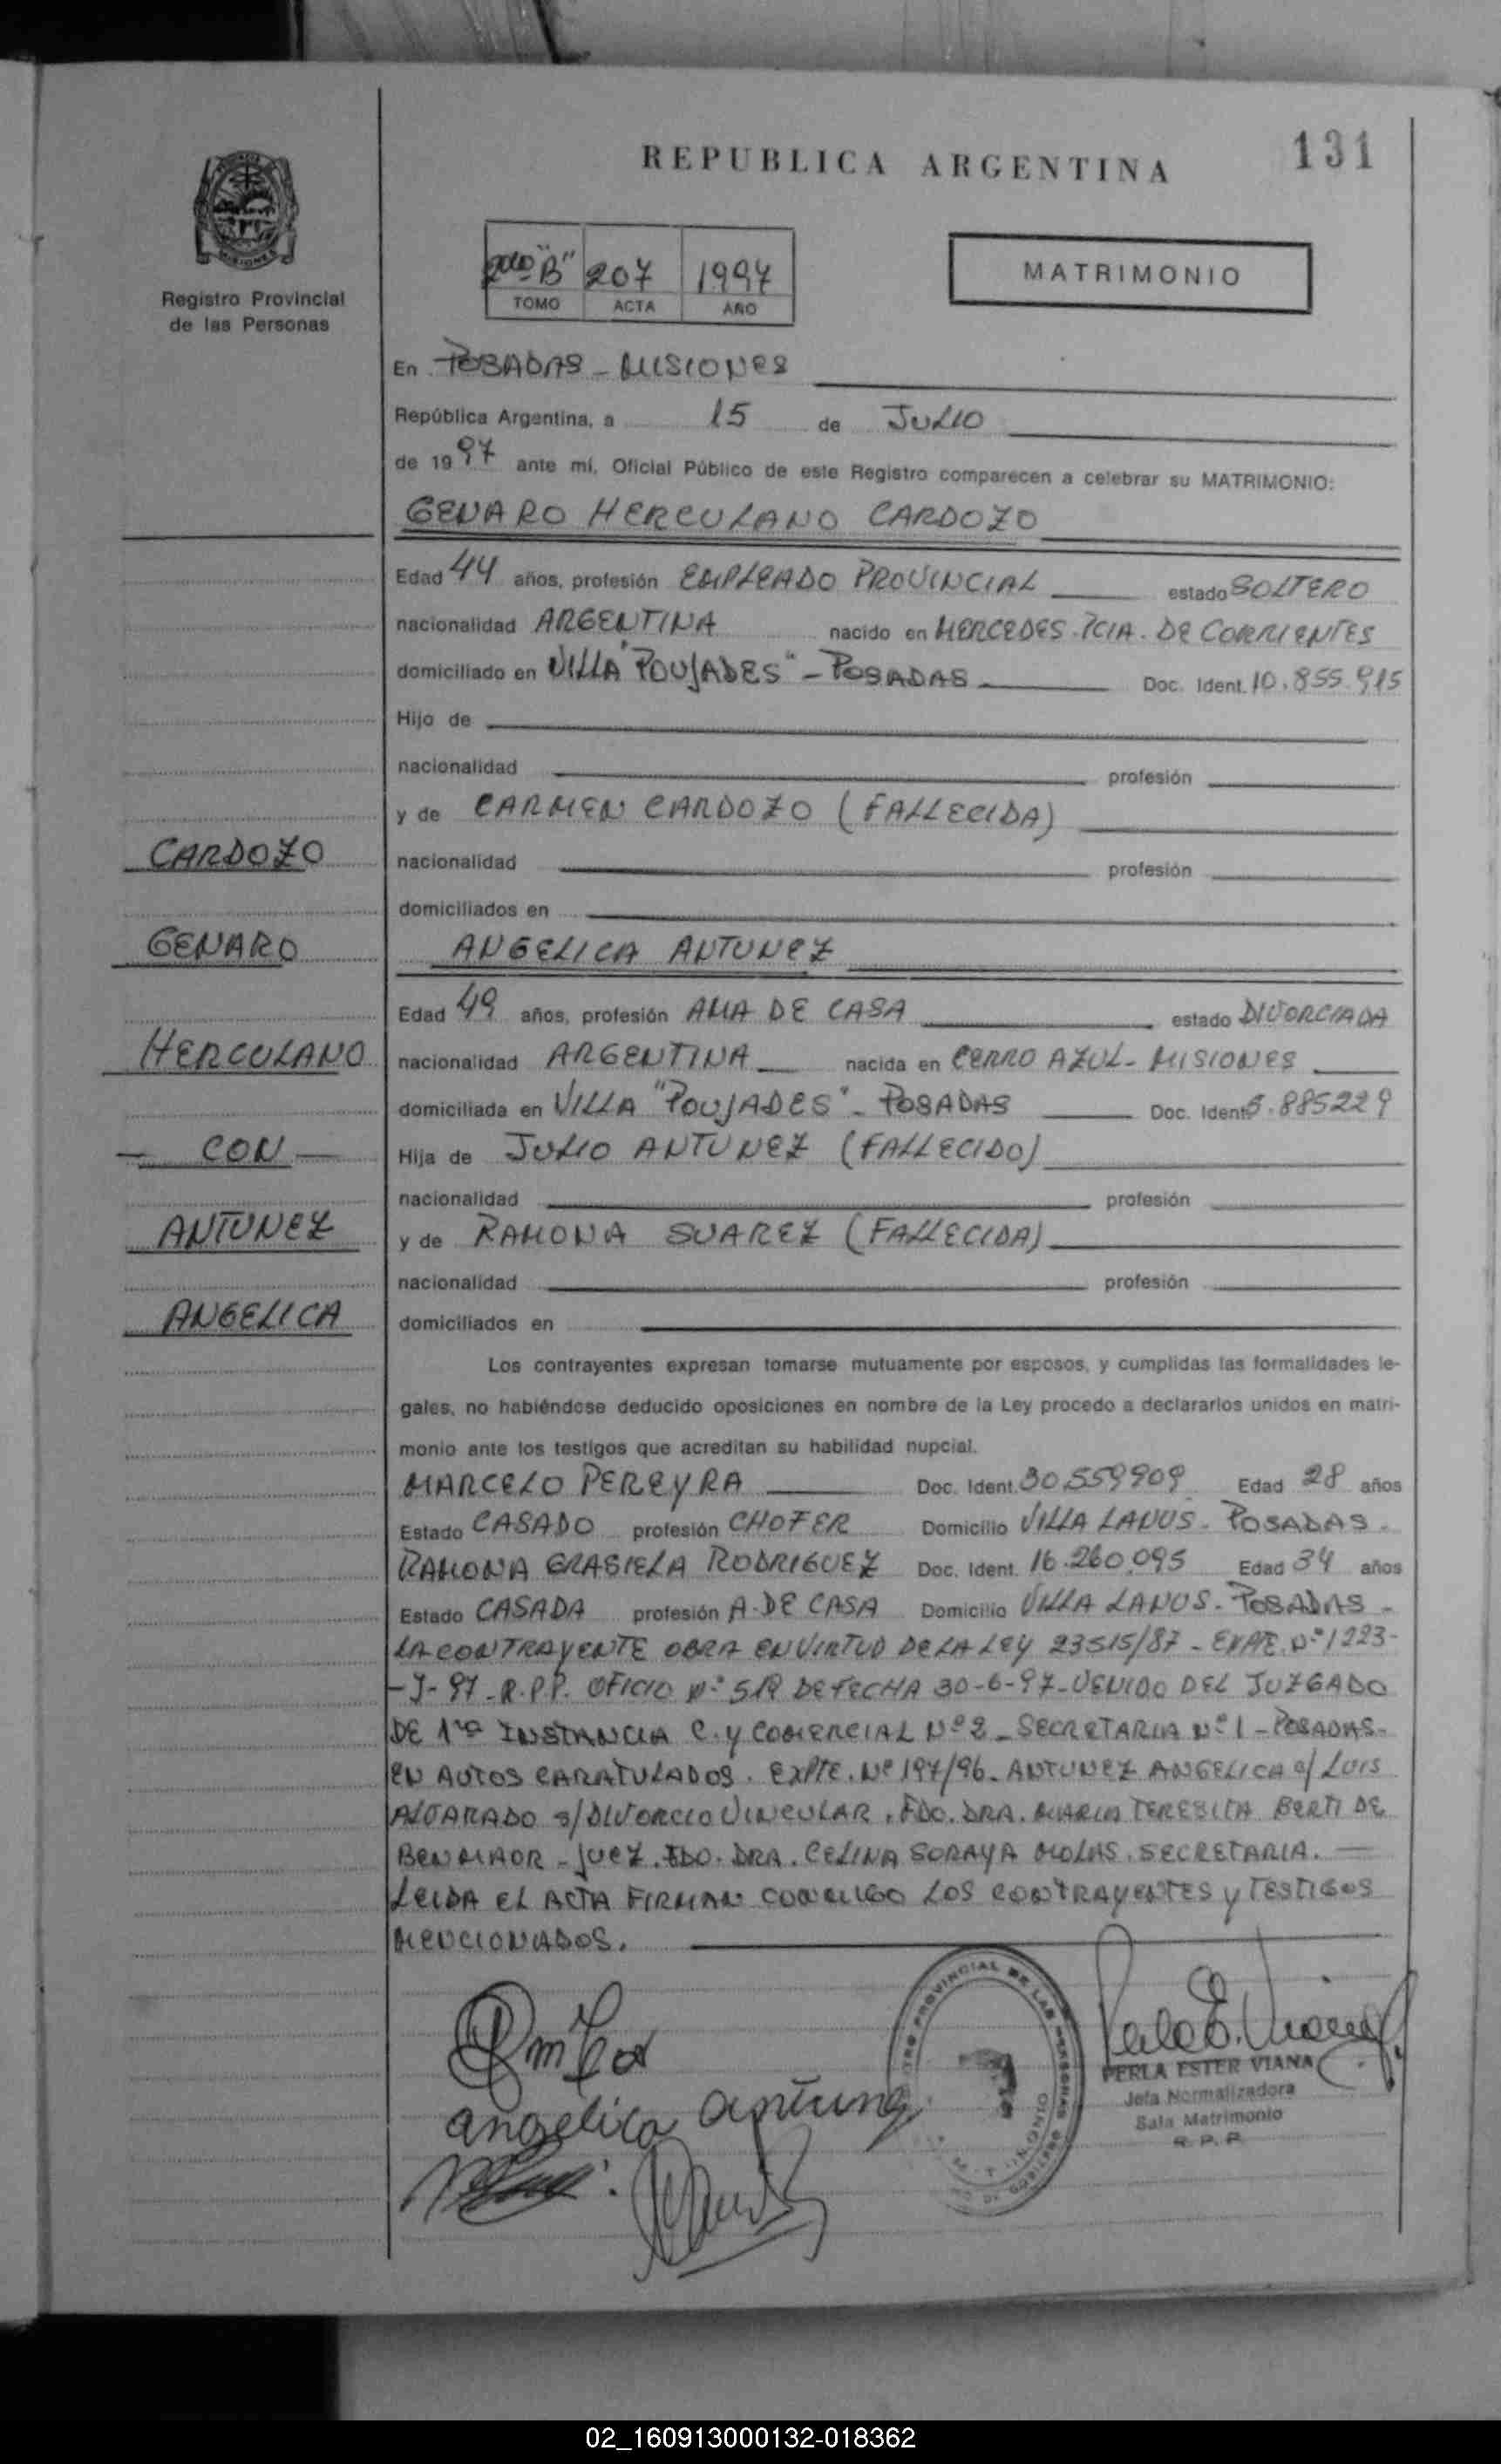 REPUBLICA ARGENTINA
131
Registro Provincial
de las Personas
2do "B" 207 1997
TOMO ACTA AÑO
MATRIMONIO
En POSADAS - MISIONES
República Argentina, a 15 de JULIO
de 1997 ante mí, Oficial Público de este Registro comparecen a celebrar su MATRIMONIO:
GENARO HERCULANO CARDOZO
Edad 44 años, profesión EMPLEADO PROVINCIAL estado SOLTERO
nacionalidad ARGENTINA nacido en MERCEDES. PCIA. DE CORRIENTES
domiciliado en VILLA "POUJADES" - POSADAS Doc. Ident. 10.855.915
Hijo de
nacionalidad profesión
y de CARMEN CARDOZO (FALLECIDA)
nacionalidad profesión
domiciliados en
CARDOZO
GENARO
HERCULANO
- CON -
ANTUNEZ
ANGELICA
ANGELICA ANTUNEZ
Edad 49 años, profesión AMA DE CASA estado DIVORCIADA
nacionalidad ARGENTINA nacida en CERRO AZUL - MISIONES
domiciliada en VILLA "POUJADES" - POSADAS Doc. Ident 5.885229
Hija de JULIO ANTUNEZ (FALLECIDO)
nacionalidad profesión
y de RAMONA SUAREZ (FALLECIDA)
nacionalidad profesión
domiciliados en
Los contrayentes expresan tomarse mutuamente por esposos, y cumplidas las formalidades le-
gales, no habiéndose deducido oposiciones en nombre de la Ley procedo a declararlos unidos en matri-
monio ante los testigos que acreditan su habilidad nupcial.
MARCELO PEREYRA Doc. Ident. 30,559909 Edad 28 años
Estado CASADO profesión CHOFER Domicilio VILLA LANUS - POSADAS -
RAMONA GRASIELA RODRIGUEZ Doc. Ident. 16.260.095 Edad 34 años
Estado CASADA profesión A. DE CASA Domicilio VILLA LANUS - POSADAS -
LA CONTRAYENTE OBRA EN VIRTUD DE LA LEY 23515/87 - EXPTE. Nº 1223-
- J- 97 - R.P.P. OFICIO Nº 519 DE FECHA 30-6-97 - VENIDO DEL JUZGADO
DE 1ra INSTANCIA C. y COMERCIAL Nº 2 - SECRETARIA Nº 1 - POSADAS -
EN AUTOS CARATULADOS. EXPTE. Nº 197/96 - ANTUNEZ ANGELICA c/ LUIS
ALVARADO s/ DIVORCIO VINCULAR. FDO. DRA. MARIA TERESITA BERTI DE
BENMAOR - JUEZ. FDO. DRA. CELINA SORAYA MOLAS. SECRETARIA. -
LEIDA EL ACTA FIRMAN CONMIGO LOS CONTRAYENTES y TESTIGOS
MENCIONADOS.
angelica antunez
PERLA ESTER VIANA
Jefa Normalizadora
Sala Matrimonio
R. P. P.
02_160913000132-018362